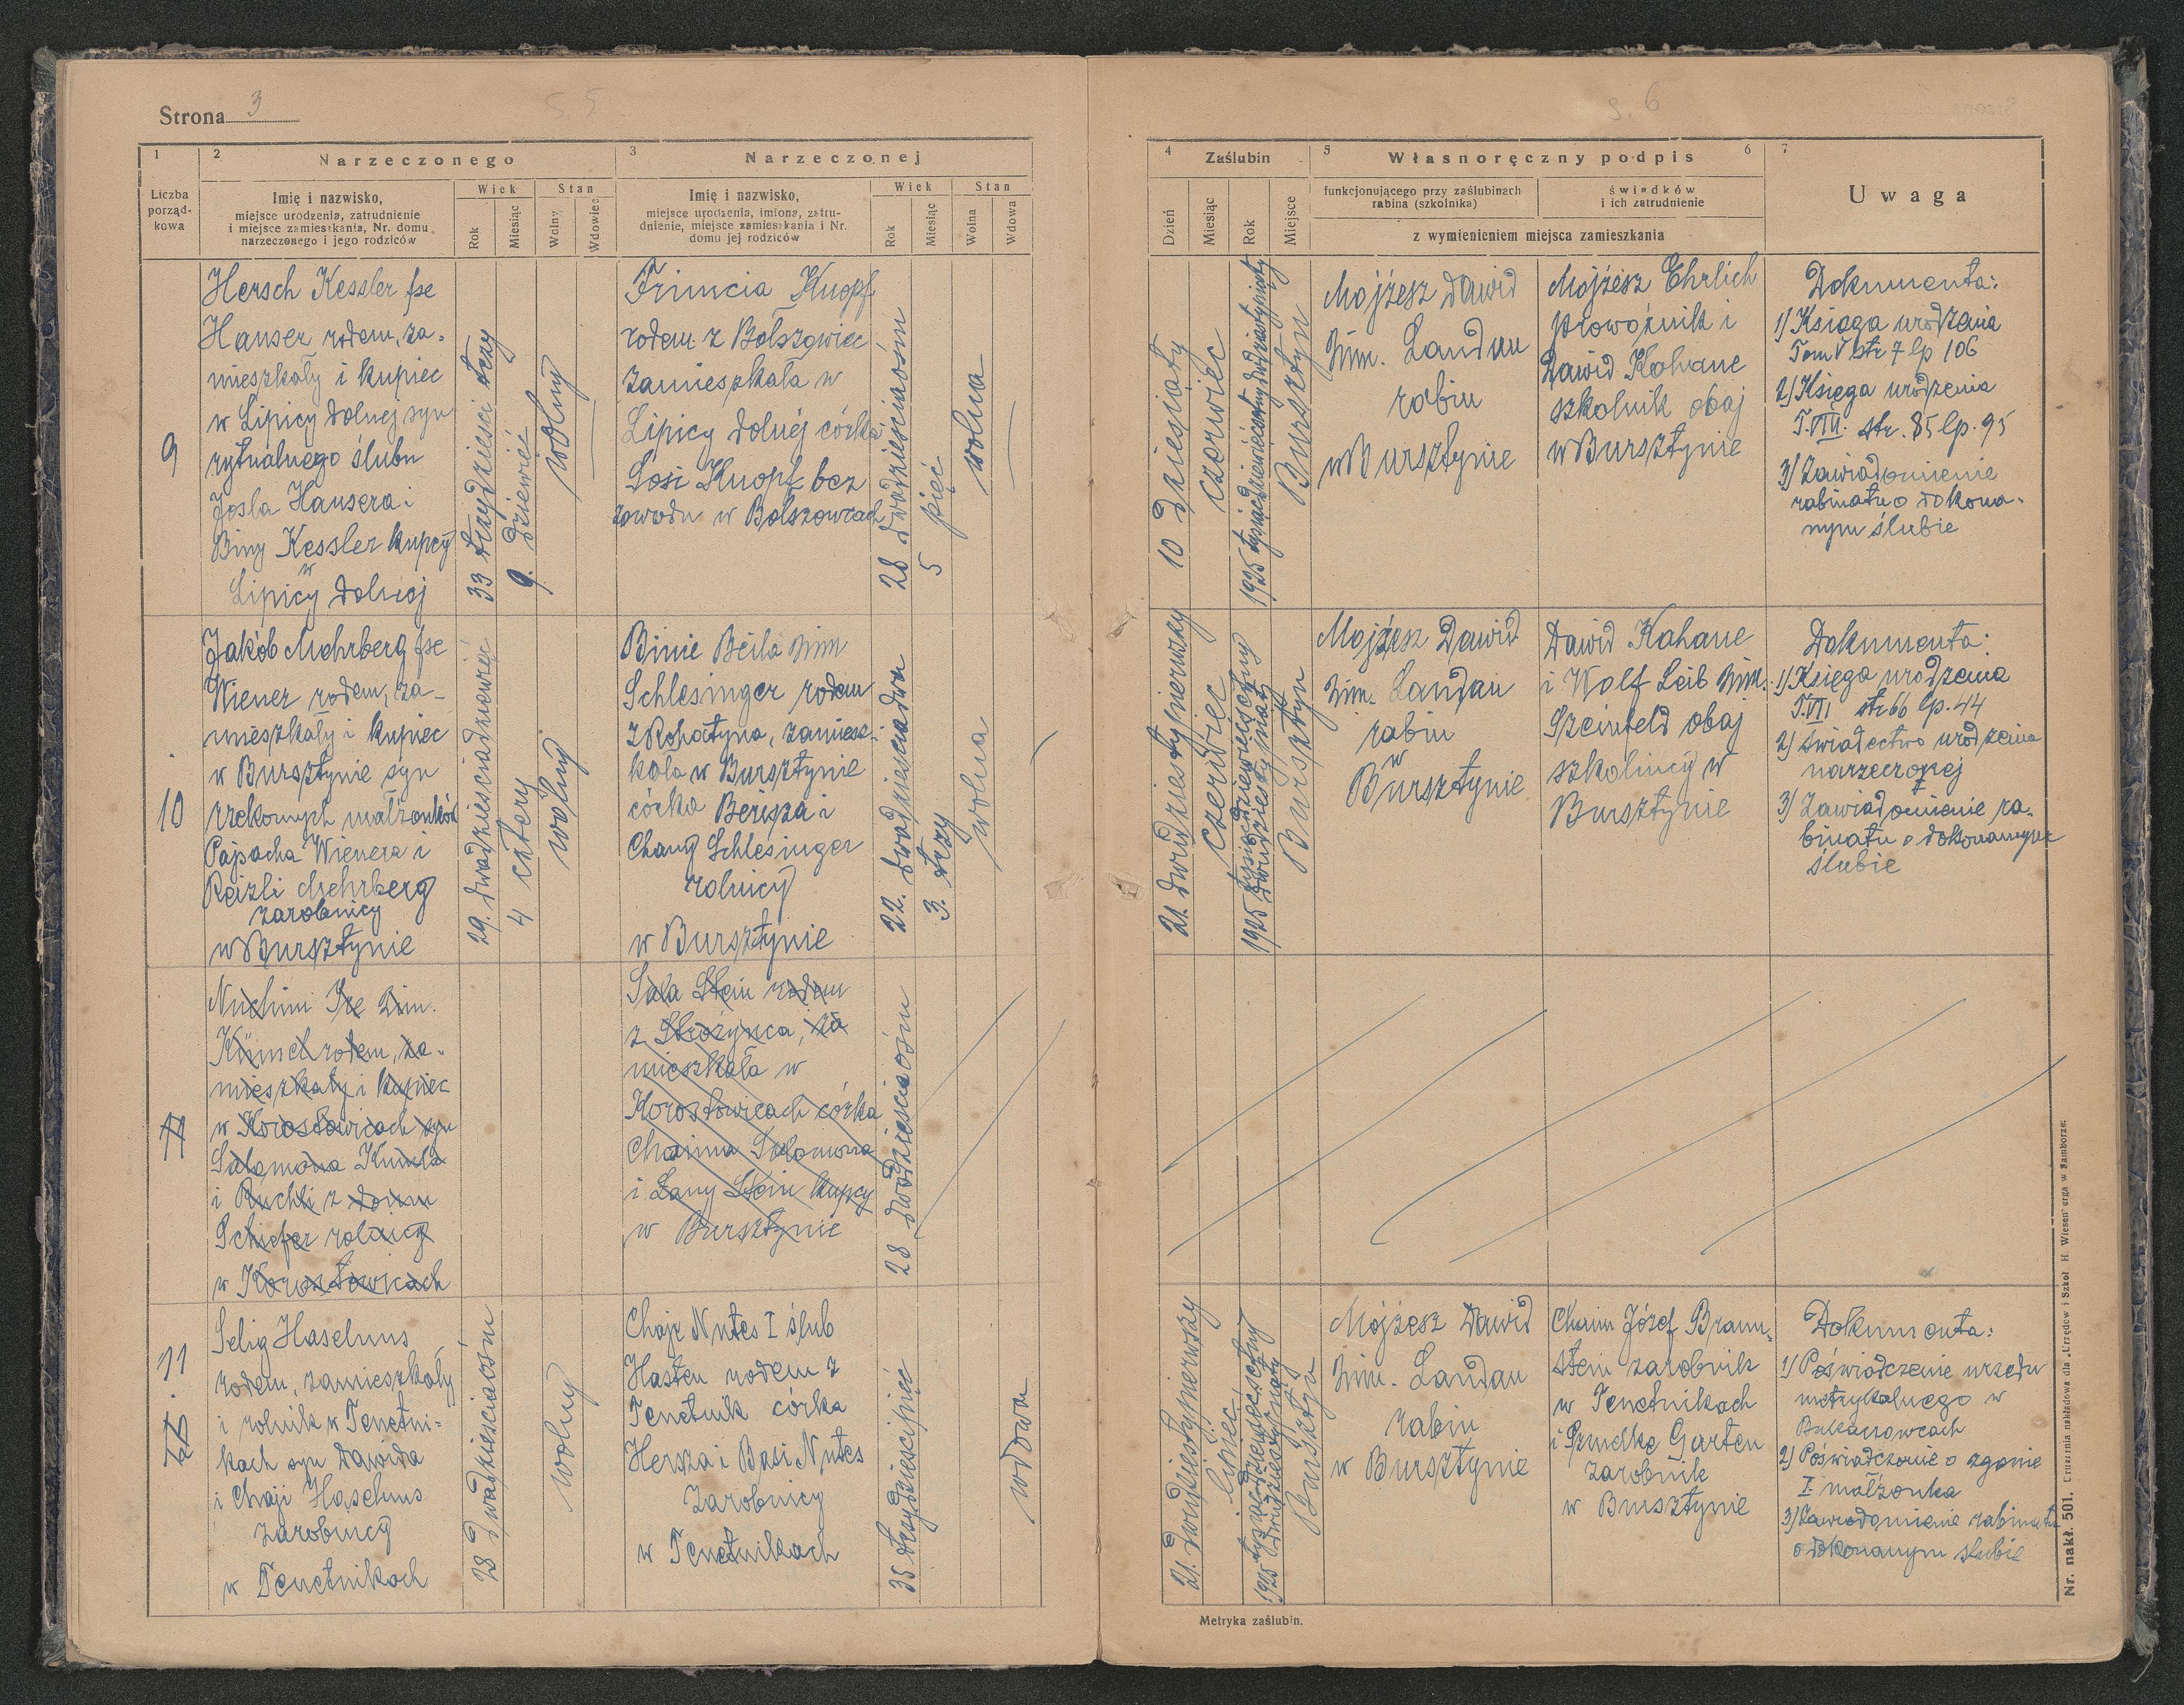 Strona 3
s. 5
1
2 Narzeczonego
3 Narzeczonej
Liczba
porząd-
kowa
Imię i nazwisko,
miejsce urodzenia, zatrudnienie
i miejsce zamieszkania, Nr. domu
narzeczonego i jego rodziców
Wiek
Rok
Miesiąc
Stan
Wolny
Wdowiec
Imię i nazwisko,
miejsce urodzenia, imiona, zatru-
dnienie, miejsce zamieszkania i Nr.
domu jej rodziców
Wiek
Rok
Miesiąc
Stan
Wolna
Wdowa
9
Hersch Kessler fse
Hauser rodem, za-
mieszkały i kupiec
w Lipicy dolnej syn
rytualnego ślubu
Josla Hausera i
Biny Kessler kupcy
w
Lipicy dolnej
33 trzydzieści trzy
9. dziewięć
wolny
Frimcia Knopf
rodem z Bolszowiec
zamieszkała w
Lipicy dolnej córka
Sosi Knopf bez
zawodu w Bolszowcach
28 dwadzieścia ośm
5 pięć
wolna
10
Jakób Mehrberg fse
Wiener rodem, za-
mieszkały i kupiec
w Bursztynie syn
rzekomych małżonków
Pajsacha Wienera i
Reizli Mehrberg
zarobnicy
w Bursztynie
29. dwadzieścia dziewięć
4 cztery
wolny
Binie Beila 2im
Schlesinger rodem
z Rohatyna, zamiesz-
kała w Bursztynie
córka Berisza i
Chany Schlesinger
rolnicy
w Bursztynie
22. dwadzieścia dwa
3. trzy
wolna
11
Nuchim Ire 2im.
Kümel rodem, za-
mieszkały i kupiec
w Korostowicach syn
Salamona Kümla
i Ruchli z domu
Schiefer rolnicy
w Korostowicach
Sala Stein rodem
z Strożynca, za
mieszkała w
Korostowicach córka
Chaima Salomona
i Zany Stein kupcy
w Bursztynie
28 dwadzieścia ośm
11
Selig Haselnus
rodem, zamieszkały
i rolnik w Tenetni-
kach syn Dawida
i Chaji Haselnus
zarobnicy
w Tenetnikach
28 dwadzieścia ośm
wolny
Chaje Nutes I ślub
Hasten rodem z
Tenetnik córka
Hersza i Basi Nutes
zarobnicy
w Tenetnikach
35 trzydzieści pięć
wdowa
s. 6
4 Zaślubin
5 Własnoręczny podpis 6
7
Dzień
Miesiąc
Rok
Miejsce
funkcjonującego przy zaślubinach
rabina (szkolnika)
świadków
i ich zatrudnienie
z wymienieniem miejsca zamieszkania
Uwaga
10 dziesiąty
czerwiec
1925 tysiącdziewięćsetny dwudziestypiąty
Bursztyn
Mojżesz Dawid
2im. Landau
rabin
w Bursztynie
Mojżesz Ehrlich
prowoźnik i
Dawid Kahane
szkolnik obaj
w Bursztynie
Dokumenta:
1) Księga urodzenia
Tom V str 7 lp 106
2) Księga urodzenia
T. VII. str. 85 lp. 95
3) Zawiadomienie
rabinatu o dokona-
nym ślubie
21. dwudziestypierwszy
czerwiec
1925 tysiącdziewięćsetny
dwudziestypiąty
Bursztyn
Mojżesz Dawid
2im. Landau
rabin
w
Bursztynie
Dawid Kahane
i Wolf Leib 2im.
Szeinfeld obaj
szkolnicy w
Bursztynie
Dokumenta:
1) Księga urodzenia
T. VII str 66 lp. 44
2) Świadectwo urodzenia
narzeczonej
3) Zawiadomienie ra-
binatu o dokonanym
ślubie
21. dwudziestypierwszy
lipiec
1925 tysiącdziewięćsetny
dwudziestypiąty
Bursztyn
Mojżesz Dawid
2im. Landau
rabin
w Bursztynie
Chaim Józef Braun-
stein zarobnik
w Tenetnikach
i Sznelke Garten
zarobnik
w Bursztynie
Dokumenta:
1) Poświadczenie urzędu
metrykalnego w
Bukaczowcach
2) Poświadczenie o zgonie
I małżonka
3) Zawiadomienie rabinatu
o dokonanym ślubie
Metryka zaślubin.
Nr. nakł. 501. Drukarnia nakładowa dla Urzędów i Szkół H. Wiesenberga w Samborze.